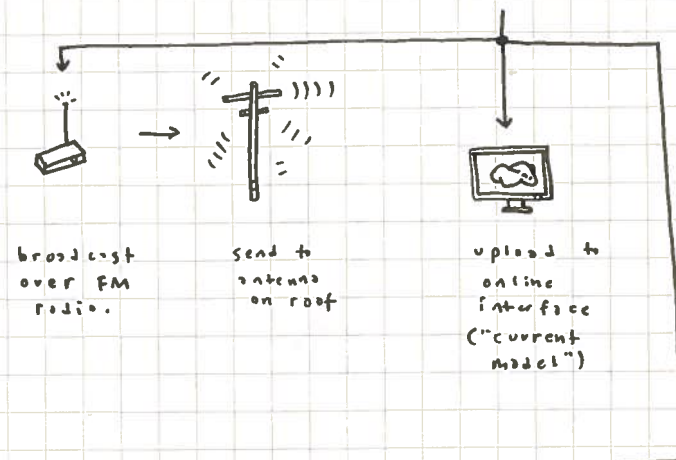 broadcast
over FM
radio.
send to
antenna
on roof
upload to
online
interface
("current
model")